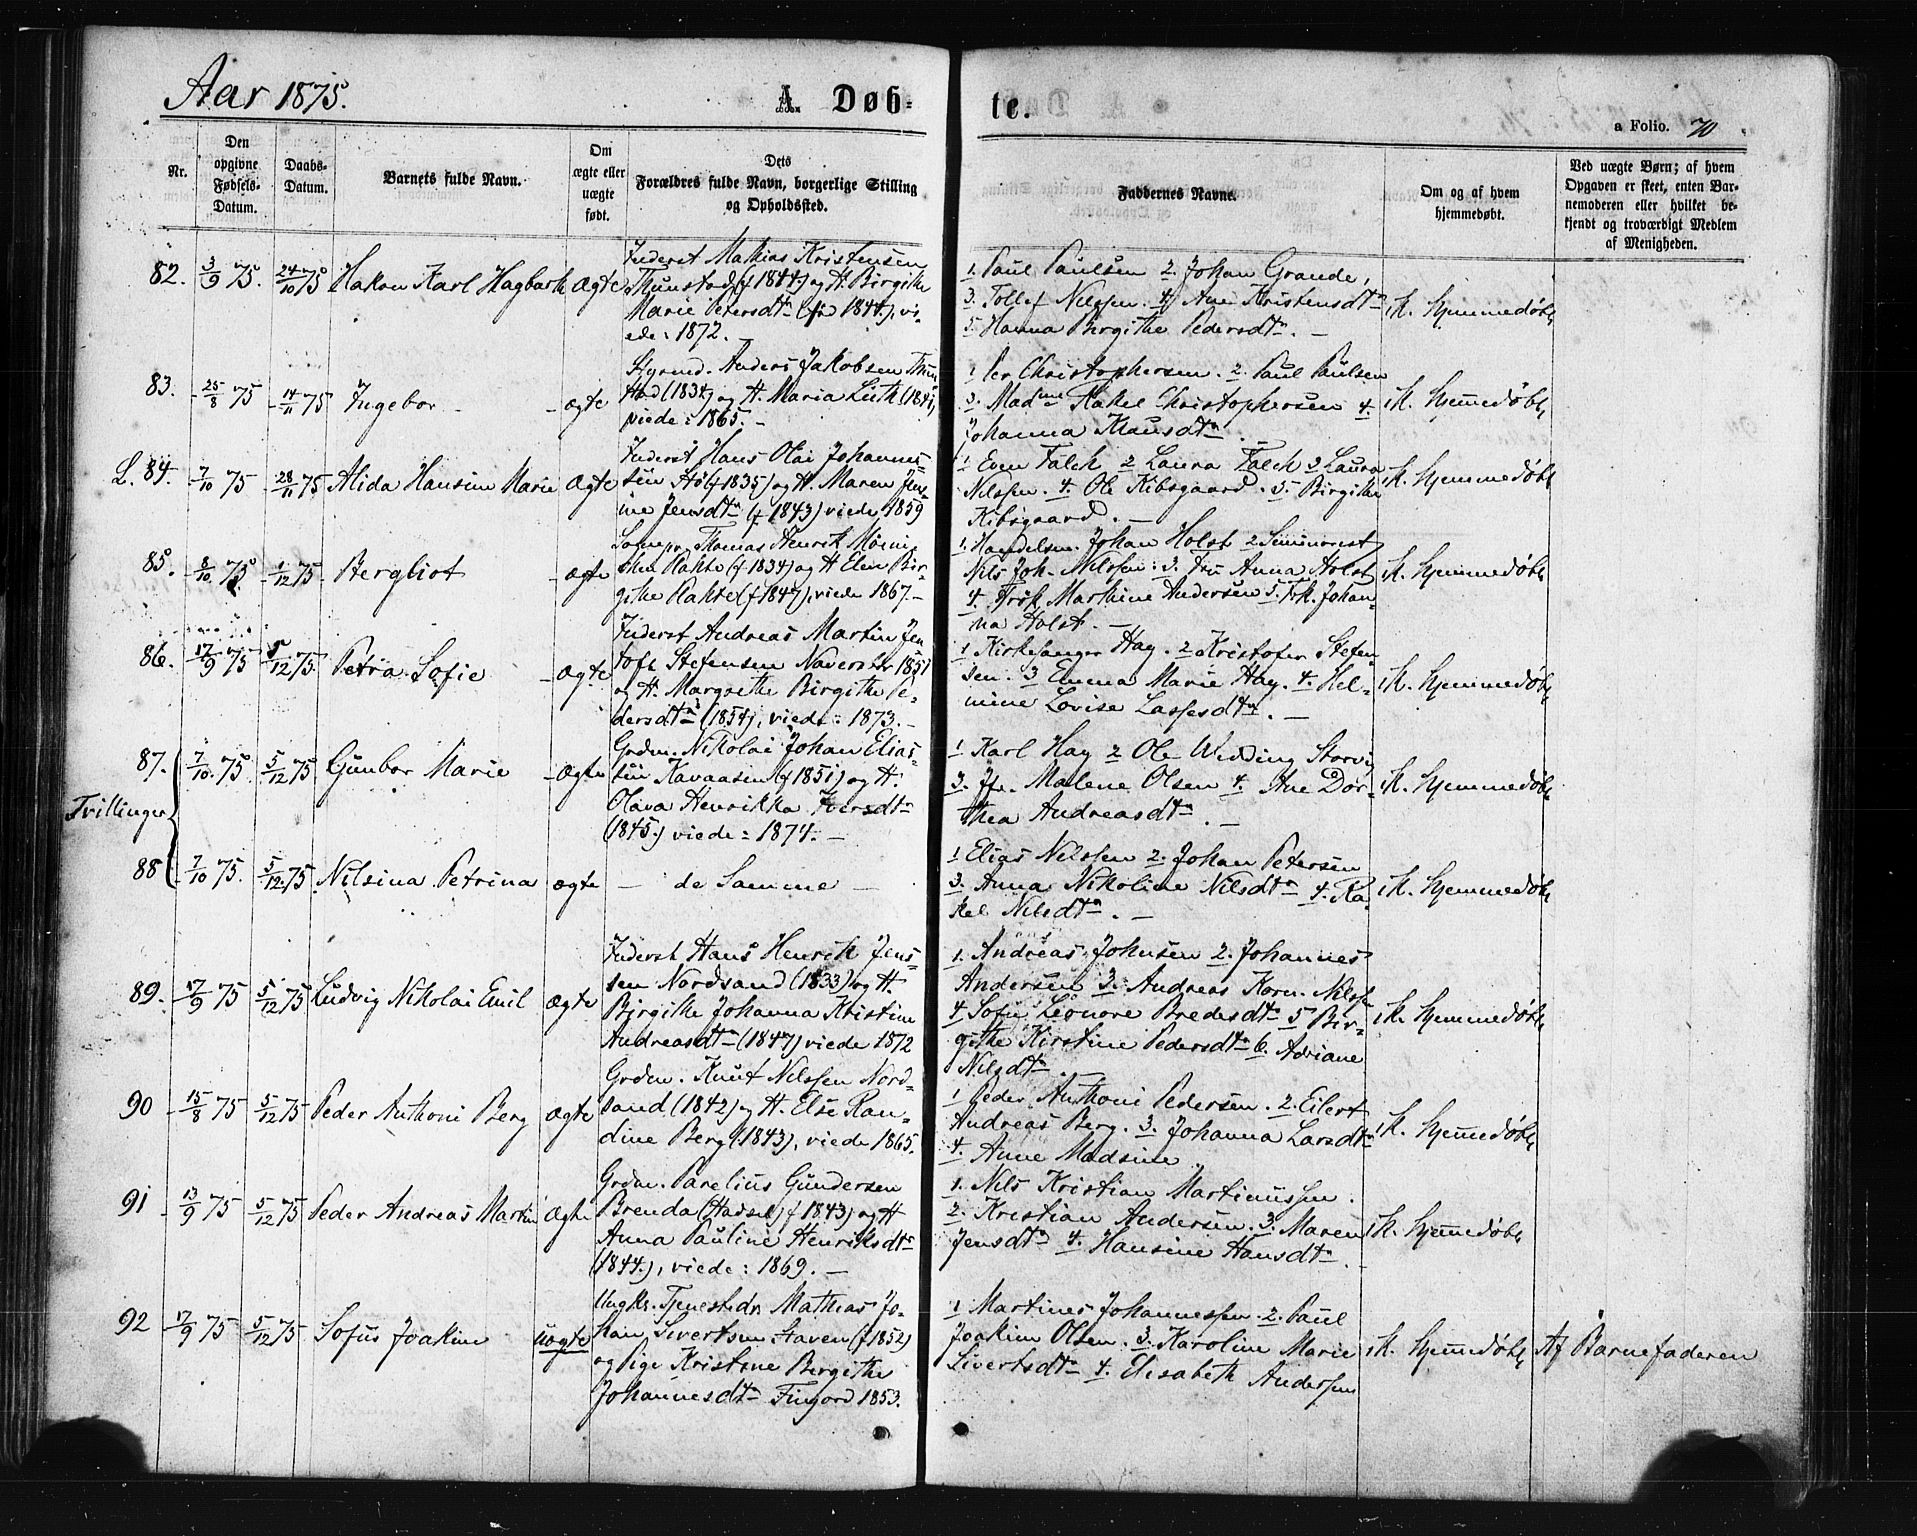 Aar 1875.
A. Døb-
te.
a Folio. 70
Nr.
Den opgivne Fødsels-Datum.
Daabs-Datum.
Barnets fulde Navn.
Om ægte eller uægte født.
Dets Forældres fulde Navn, borgerlige Stilling og Opholdssted.
Faddernes Navne.
Om og af hvem hjemmedøbt.
Ved uægte Børn; af hvem Opgaven er skeet, enten Barnemoderen eller hvilket bekjendt og troværdigt Medlem af Menigheden.
82. 3/9 75. 24/10 75 Hakon Karl Hagbarth Ægte
Inderst Mathias Kristensen
Thunstad (f 1844) og H. Birgithe
Marie Petersdtr (f 1844), vi-
ede: 1872.
1. Paul Paulsen 2. Johan Grande,
3. Tollef Nilssen. 4. Ane Kristensdtr
5. Hanna Birgithe Pedersdtr. —
ik. hjemmedøbt
83. 25/8 75 14/11 75 Ingebor - ægte
Styrmd. Anders Jakobsen Thun
stad (1834) og H. Maria Lüth (1841,
viede: 1865. —
1 Per Christophersen. 2. Paul Paulsen
3. Madme Rakel Christophersen 4.
Johanna Klausdtr. —
ik. hjemmedøbt
L. 84. 7/10 75 28/11 75 Alida Hansine Marie Ægte
Inderst Hans Olai Johannes-
sen Stø (f 1835) og H. Maren Jen-
sine Jensdtr (f 1843) viede 1859
1 Even Falch 2 Laura Falch 3 Laura
Nilssen. 4. Ole Kibsgaard. 5. Birgithe
Kibsgaard. —
ik. hjemmedøbt
85. 8/10 75 1/12 75 Bergliot - ægte
Thomas Henrik
(f 1834) og H Elen Bir-
githe (f 1847), viede 1867. —
1. Handelsm. Johan Holst 2 Seminarist
Nils Joh. Nilssen: 3. Fru Anna Holst
4. Frøk Marthine Andersen 5. Frk. Johan-
na Holst. —
ik. hjemmedøbt
86. 17/9 75 5/12 75. Petra Sofie - ægte
Inderst Andreas Martin Jen
toft Stefensen 1851
og H. Margrethe Birgithe Pe-
dersdtr (1854), viede: 1873. —
1 Kirkesanger Hay. 2 Kristofer Stefen-
sen. 3 Emma Marie Hay. 4. Hel-
mine Lovise Lassesdtr. —
ik. hjemmedøbt
Tvillinger
87. 7/10 75. 5/12 75 Gunbor Marie - Ægte
Grdm. Nikolai Johan Elias-
sen Kavaasen (f 1851) og H.
Olava Henrikka Iversdtr
(1845.) viede: 1874. —
1 Karl Hay 2 Ole Widding Storvig
3. Jfr. Malene Olsen 4. Ane Dor-
thea Andreasdtr. —
ik. hjemmedøbt
88 7/10 75. 5/12. 75. Nilsina Petrina ægte
— de Samme —
1 Elias Nilssen 2. Johan Petersen
3. Anna Nikoline Nilsdtr 4. Ra-
kel Nilsdtr. —
ik. hjemmedøbt
89. 17/9 75 5/12 75 Ludvig Nikolai Emil ægte
Inderst Hans Henrik Jens-
sen Nordsand (1833) og H.
Birgithe Johanna Kristine
Andreasdtr (1847) viede 1872
1. Andreas Johnsen 2. Johannes
Andersen 3. Andreas Korn. Nilssen
4. Sofie Leonore Bredesdtr 5 Bir-
githe Kirstine Pedersdtr 6. Adriane
Nilsdtr. —
ik. hjemmedøbt
90 15/8 75 5/12 75 Peder Anthoni Berg ægte
Grdm. Knut Nilssen Nord-
sand (1842) og H. Else Ran-
dine Berg (1843), viede 1865.
1 Peder Anthoni Pedersen. 2. Eilert
Andreas Berg. 3. Johanna Larsdtr
4. Anne Madsine
ik. hjemmedøbt
91 13/9 75 5/12 75 Peder Andreas Martin Ægte
Grdm. Parelius Gundersen
Brenda (Hadsel) f 1843) og H
Anna Pauline Henriksdtr
(1844.), viede: 1869. —
1. Nils Kristian Martinussen.
2. Kristian Andersen. 3. Maren
Jensdtr 4. Hansine Hansdtr.
ik. hjemmedøbt
92 17/9 75 5/12 75 Sofus Joakim uægte
Ungkr. Tjenestedr Mathias Jo-
han Sivertsen Staven (f 1852)
og Pige Kristine Bergithe
Johannesdtr Fingord 1853.
1 Martines Johannessen. 2. Paul
Joakim Olsen. 3. Karoline Marie
Sivertsdtr 4. Elisabeth Anderssen
ik. hjemmedøbt
Af Barnefaderen